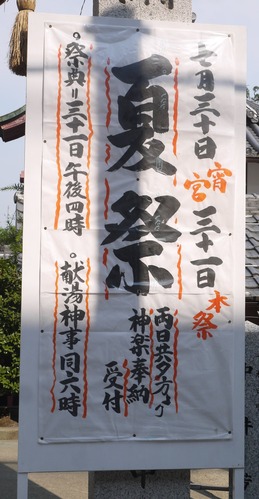 七月三十日宵宮三十一日本祭
夏祭
両日共夕方より
神楽奉納
受付
。祭典＝三十一日午後四時
。献湯神事同六時